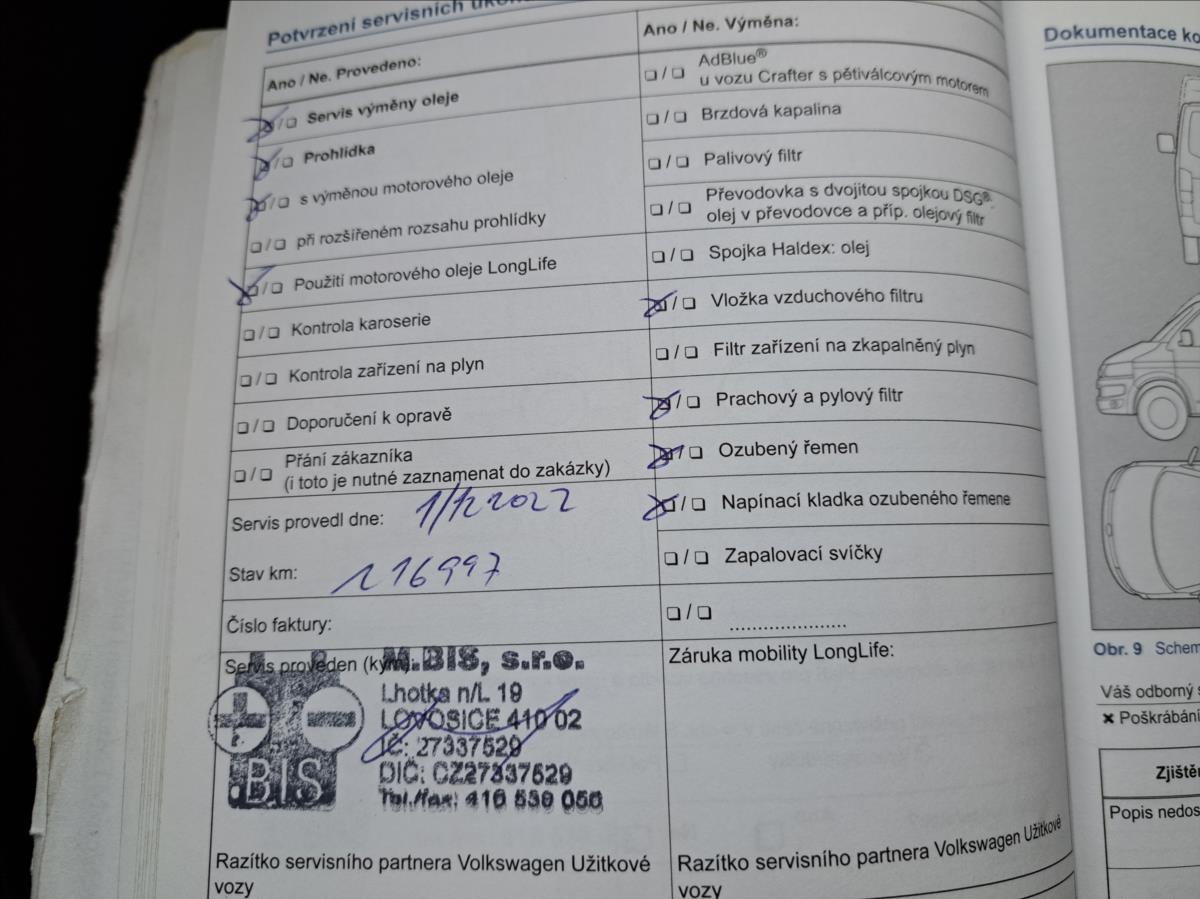 Potvrzení servisních
Ano / Ne. Provedeno:
☒ / ❏ Servis výměny oleje
☒ / ❏ Prohlídka
☒ / ❏ s výměnou motorového oleje
❏ / ❏ při rozšířeném rozsahu prohlídky
☒ / ❏ Použití motorového oleje LongLife
❏ / ❏ Kontrola karoserie
❏ / ❏ Kontrola zařízení na plyn
❏ / ❏ Doporučení k opravě
❏ / ❏ Přání zákazníka
(i toto je nutné zaznamenat do zakázky)
Servis provedl dne: 1/12 2022
Stav km: 216997
Číslo faktury:
Servis proveden (kým):
M.BIS, s.r.o.
Lhotka n/L 19
LOVOSICE 410 02
IČ: 27337529
DIČ: CZ27337529
Tel./fax: 416 539 056
BIS
Razítko servisního partnera Volkswagen Užitkové
vozy
Ano / Ne. Výměna:
❏ / ❏ AdBlue®
u vozu Crafter s pětiválcovým motorem
❏ / ❏ Brzdová kapalina
❏ / ❏ Palivový filtr
❏ / ❏ Převodovka s dvojitou spojkou DSG®:
olej v převodovce a příp. olejový filtr
❏ / ❏ Spojka Haldex: olej
☒ / ❏ Vložka vzduchového filtru
❏ / ❏ Filtr zařízení na zkapalněný plyn
☒ / ❏ Prachový a pylový filtr
☒ / ❏ Ozubený řemen
☒ / ❏ Napínací kladka ozubeného řemene
❏ / ❏ Zapalovací svíčky
❏ / ❏ ....................
Záruka mobility LongLife:
Razítko servisního partnera Volkswagen Užitkové
vozy
Dokumentace
Obr. 9 Schem
Váš odborný
✖ Poškrábání
Zjiště
Popis nedos